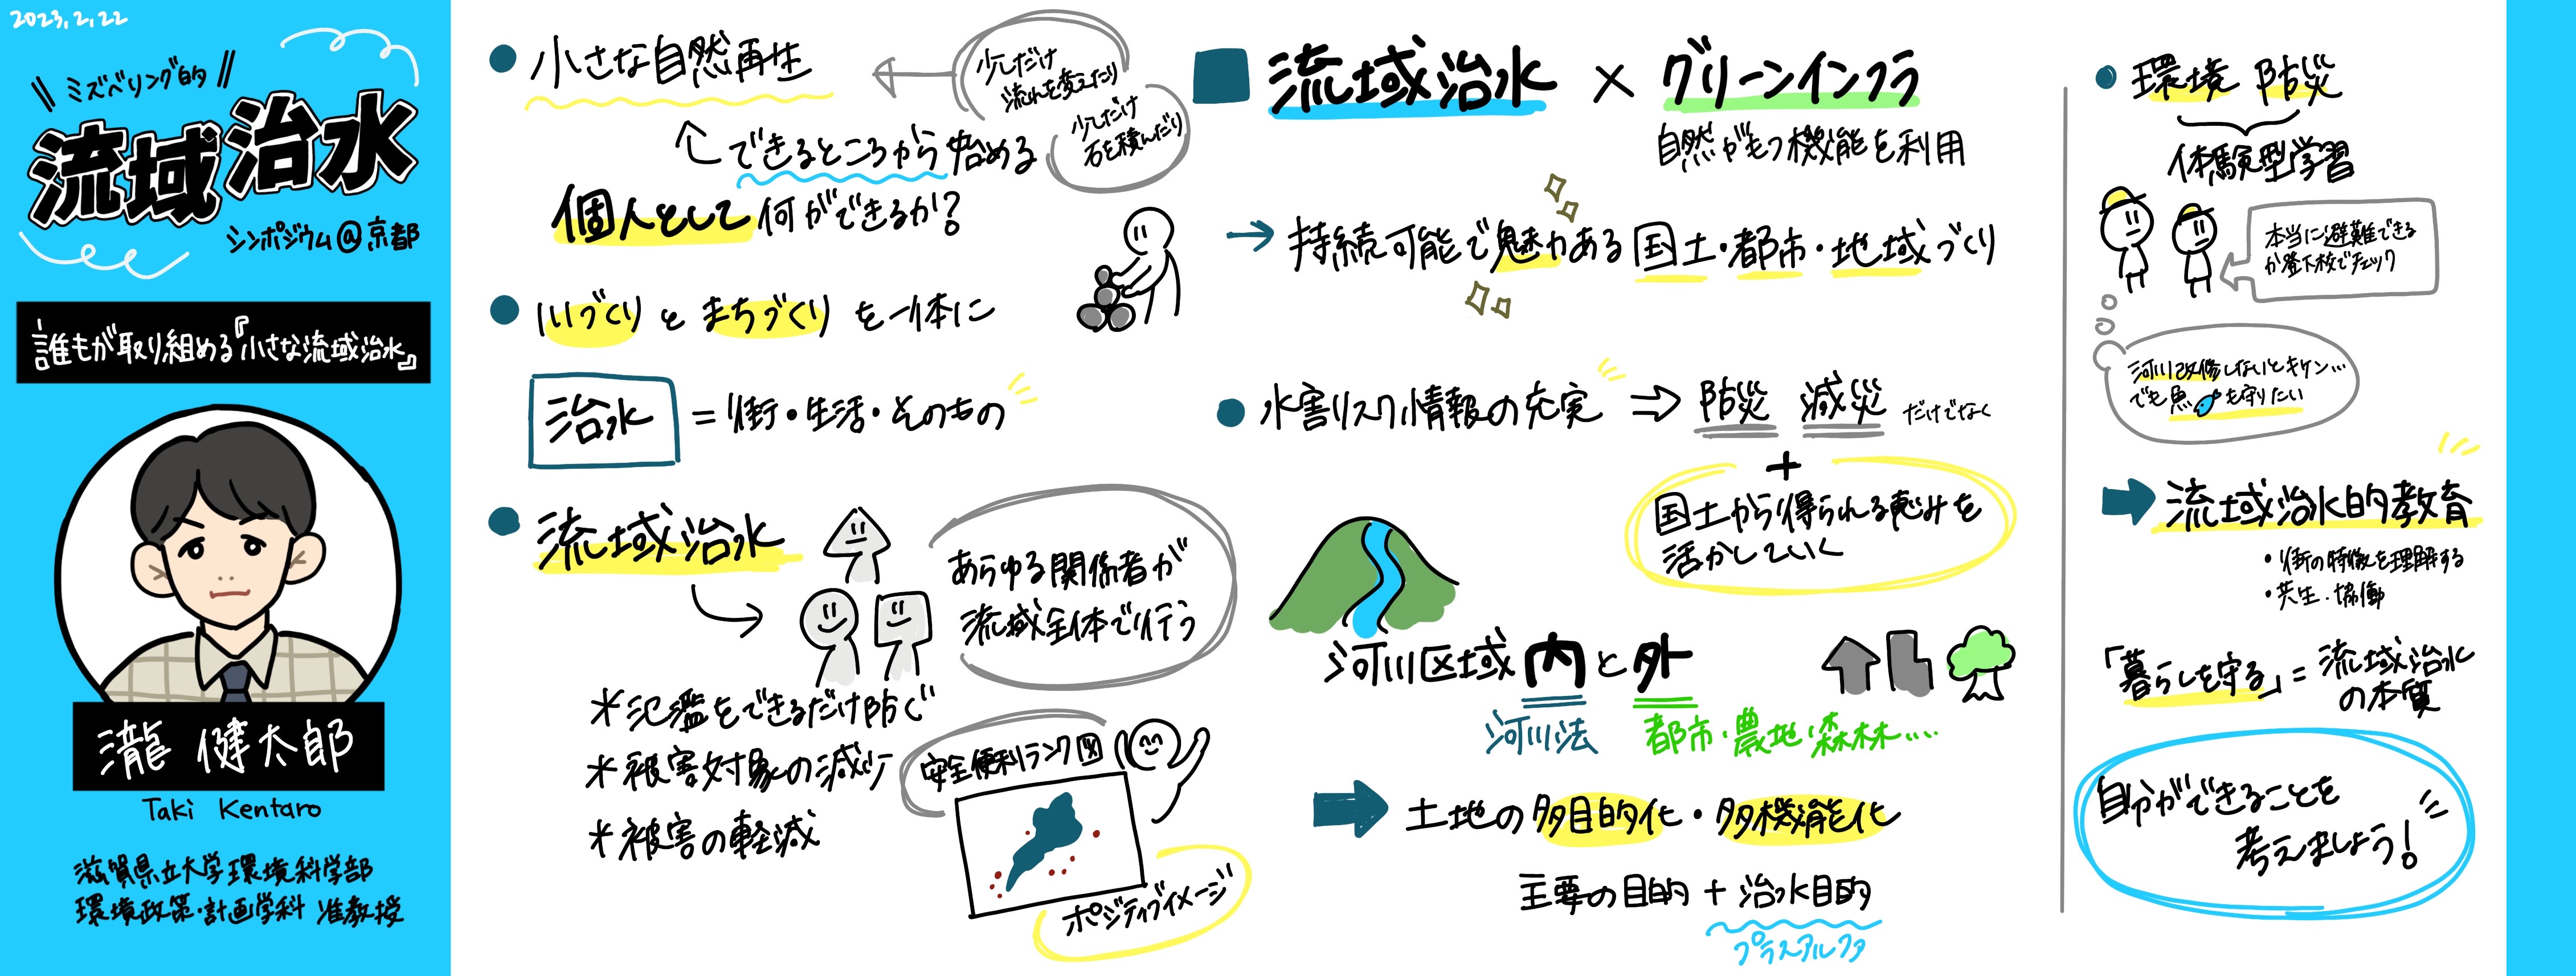 2023.2.22
ミズベリング的
流域治水
シンポジウム@京都
誰もが取り組める『小さな流域治水』
瀧 健太郎
Taki Kentaro
滋賀県立大学環境科学部
環境政策・計画学科 准教授
小さな自然再生
少しだけ
流れを変えたり
少しだけ
石を積んだり
できるところから始める
個人として何ができるか?
川づくりとまちづくりを一体に
治水=街・生活・そのもの
流域治水
あらゆる関係者が
流域全体で行う
*氾濫をできるだけ防ぐ
*被害対象の減少
*被害の軽減
安全便利ランク図
ポジティブイメージ
流域治水×グリーンインフラ
自然がもつ機能を利用
→持続可能で魅力ある国土・都市・地域づくり
水害リスク情報の充実⇒防災 減災だけでなく
+
国土から得られる恵みを
活かしていく
河川区域内と外
河川法
都市・農地・森林・・・・
土地の多目的化・多機能化
主要の目的+治水目的
プラスアルファ
環境 防災
体験型学習
本当に避難できる
か登下校でチェック
河川改修しないとキケン…
でも魚も守りたい
流域治水的教育
・街の特徴を理解する
・共生・協働
「暮らしを守る」=流域治水
の本質
自分ができることを
考えましょう!